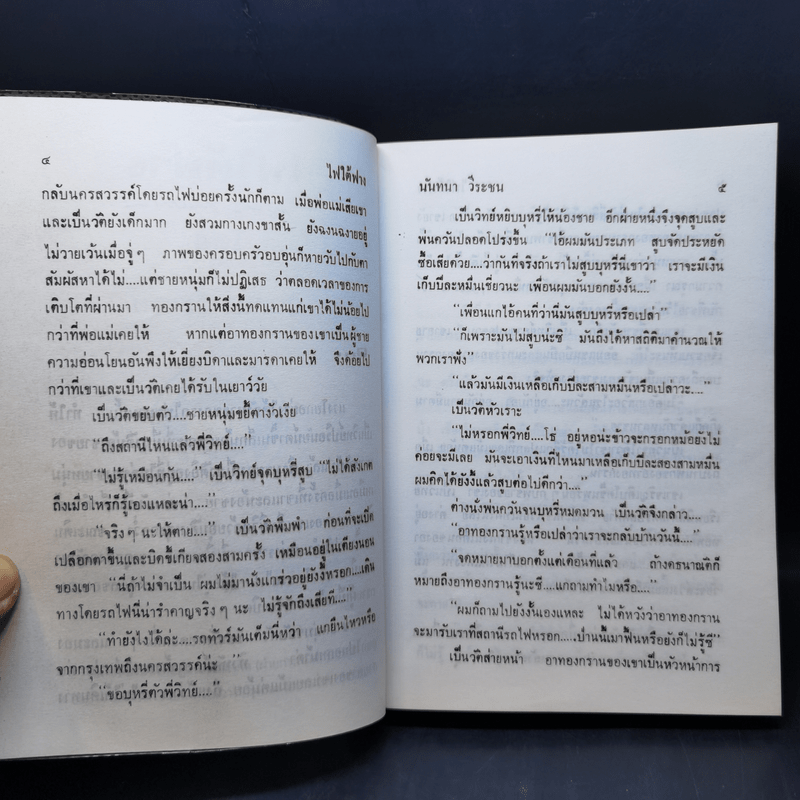 ๔
ไฟใต้ฟาง
กลับนครสวรรค์โดยรถไฟบ่อยครั้งนักก็ตาม เมื่อพ่อแม่เสียเขา
และเป็นวัติยังเด็กมาก ยังสวมกางเกงขาสั้น ยังฉงนฉงายอยู่
ไม่วายเว้นเมื่อจู่ๆ ภาพของครอบครัวอบอุ่นก็หายวับไปกับตา
สัมผัสหาได้ไม่....แต่ชายหนุ่มก็ไม่ปฏิเสธ ว่าตลอดเวลาของการ
เติบโตที่ผ่านมา ทองกรานให้สิ่งนี้ทดแทนแก่เขาได้ไม่น้อยไป
กว่าที่พ่อแม่เคยให้ หากแต่อาทองกรานของเขาเป็นผู้ชาย
ความอ่อนโยนอันพึงให้เยี่ยงบิดาและมารดาเคยให้ จึงด้อยไป
กว่าที่เขาและเป็นวัติเคยได้รับในเยาว์วัย
เป็นวัติขยับตัว....ชายหนุ่มขยี้ตางัวเงีย
“ถึงสถานีไหนแล้วพี่วิทย์....”
“ไม่รู้เหมือนกัน....” เป็นวิทย์จุดบุหรี่สูบ “ไม่ได้สังเกต
ถึงเมื่อไหร่ก็รู้เองแหละน่า....”
“จริงๆ นะให้ตาย....” เป็นวัติพึมพำ ก่อนที่จะเปิด
เปลือกตาขึ้น และบิดขี้เกียจสองสามครั้ง เหมือนอยู่ในเตียงนอน
ของเขา “นี่ถ้าไม่จำเป็น ผมไม่มานั่งแกร่วอยู่ยังงี้หรอก....เดิน
ทางโดยรถไฟนี่น่ารำคาญจริงๆ นะ ไม่รู้จักถึงเสียที....”
“ทำยังไงได้ล่ะ....รถทัวร์มันเต็มนี่หว่า แกยืนไหวหรือ
จากกรุงเทพถึงนครสวรรค์น่ะ”
“ขอบุหรี่ตัวพี่วิทย์....”
นันทนา วีระชน
๕
เป็นวิทย์หยิบบุหรี่ให้น้องชาย อีกฝ่ายหนึ่งจึงจุดสูบและ
พ่นควันปลอดโปร่งขึ้น “ไอ้ผมมันประเภท สูบจัดประหยัด
ซื้อเสียด้วย....ว่ากันที่จริงถ้าเราไม่สูบบุหรี่นี่เขาว่า เราจะมีเงิน
เก็บปีละหมื่นเชียวนะ เพื่อนผมมันบอกยังงั้น....”
“เพื่อนแกไอ้คนที่ว่านี่มันสูบบุหรี่หรือเปล่า”
“ก็เพราะมันไม่สูบน่ะซิ มันถึงได้หาสถิติมาคำนวณให้
พวกเราฟัง”
“แล้วมันมีเงินเหลือเก็บปีละสามหมื่นหรือเปล่าวะ....”
เป็นวัติหัวเราะ
“ไม่หรอกพี่วิทย์....โธ่ อยู่หอน่ะข้าวจะกรอกหม้อยังไม่
ค่อยจะมีเลย มันจะเอาเงินที่ไหนมาเหลือเก็บปีละสองสามหมื่น
ผมคิดได้ยังงี้แล้วสูบต่อไปดีกว่า....”
ต่างนั่งพ่นควันจนบุหรี่หมดมวน เป็นวัติจึงกล่าว....
“อาทองกรานรู้หรือเปล่าว่าเราจะกลับบ้านวันนี้....”
“จดหมายมาบอกตั้งแต่เดือนที่แล้ว ถ้างคธนาณัติก็
หมายถึงอาทองกรานรู้นะซี....แกถามทำไมหรือ....”
“ผมก็ถามไปยังงั้นเองแหละ ไม่ได้หวังว่าอาทองกราน
จะมารับเราที่สถานีรถไฟหรอก....ป่านนี้เมาฟื้นหรือยังก็ไม่รู้ซี”
เป็นวัติส่ายหน้า อาทองกรานของเขาเป็นหัวหน้าการ